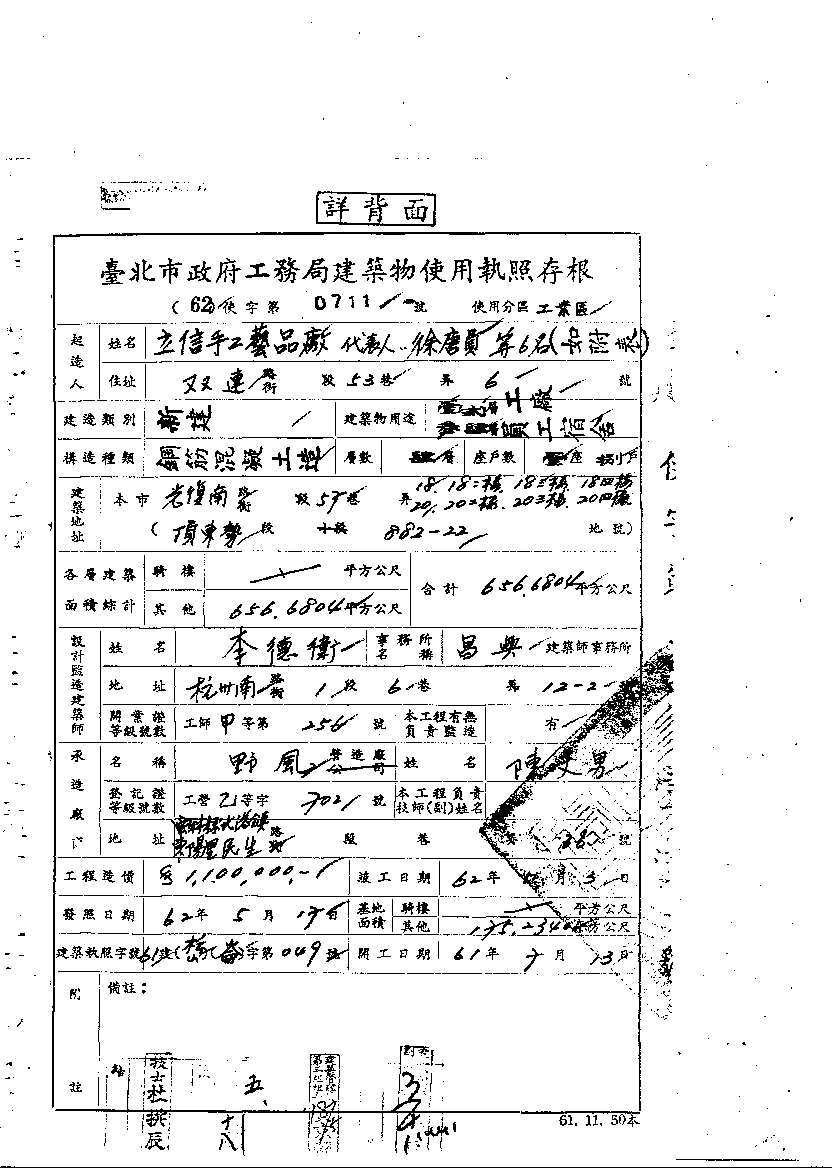 詳背面
臺北市政府工務局建築物使用執照存根
(62)使字第 0711 號 使用分區 工業區
起造人 姓名 立信手工藝品廠 代表人 徐唐員 等6名(如附表)
住址 双連 路街 段 53巷 弄 6 號
建造類別 新建 建築物用途 工廠 員工宿舍
構造種類 鋼筋混凝土造 層數 層 座戶數 座 捌戶
建築地址 本市 光復南 路街 段 57巷 弄 18.18二樓.18三樓.18四樓 20.20二樓.20三樓.20四樓
(頂東勢 段 小段 882-22 地號)
各層建築面積綜計 騎樓 平方公尺 合計 656.6804平方公尺
其他 656.6804平方公尺
設計監造建築師 姓名 李德衛 事務所名稱 昌興 建築師事務所
地址 杭州南 路街 1段 6巷 弄 12-2
開業證等級號數 工師甲等第 256 號 本工程有無負責監造 有
承造廠 名稱 野風 營造廠公司 姓名 陳 男
登記證等級號數 工營乙等字 702 號 本工程負責技師(副)姓名
地址 民生路 段 巷 號
工程造價 1,100,000 竣工日期 62年 月 日
發照日期 62年 5月 日 基地面積 騎樓 平方公尺
其他 175.2340平方公尺
建築執照字號 61建(松)(崙)字第 049 號 開工日期 61年 月 13日
附註 備註：
技士杜 辰 五、十八
61.11.50本